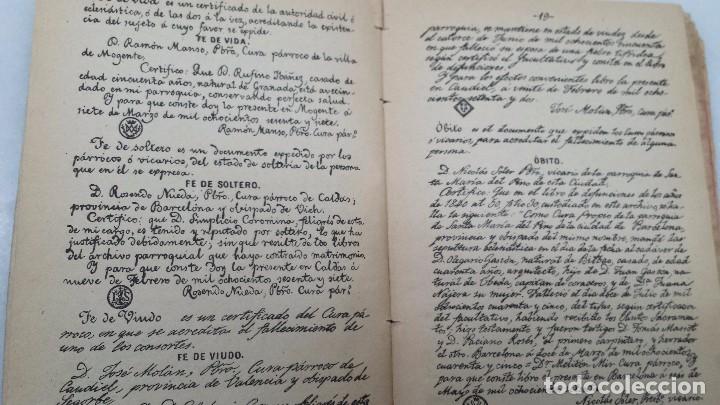 es un certificado de la autoridad civil ó
eclesiástica, ó de las dos á la vez, acreditando la existen-
cia del sujeto á cuyo favor se expide.
FE DE VIDA.
D. Ramón Manso, Pbro, Cura párroco de la villa
de Mogente.
Certifico: Que D. Rufino Ibáñez, casado, de
edad cincuenta años, natural de Granada, está avecin-
dado en mi parroquia, conservando perfecta salud.
Y para que conste doy la presente en Mogente á
siete de Marzo de mil ochocientos setenta y siete.
Ramón Manso, Pbro, Cura pár.º
Fe de soltero es un documento expedido por los
párrocos ó vicarios, del estado de soltería de la persona
que en él se expresa.
FE DE SOLTERO.
D. Rosendo Nueda, Pbro, Cura párroco de Caldas,
provincia de Barcelona y obispado de Vich.
Certifico: que D. Simplicio Coromina, feligrés de esta
de mi cargo, es tenido y reputado por soltero, lo que ha
justificado debidamente; sin que resulte de los libros
del archivo parroquial que haya contraido matrimonio.
Y para que conste doy la presente en Caldas á
nueve de Febrero de mil ochocientos sesenta y siete.
Rosendo Nueda, Pbro. Cura pár.º
Fe de Viudo es un certificado del Cura pá-
rroco, en que se acredita el fallecimiento de
uno de los consortes.
FE DE VIUDO.
D. José Molán, Pbro, Cura párroco de
Caudiel, provincia de Valencia y obispado de
Segorbe.
feligrés de esta
- 19 -
parroquia, se mantiene en estado de viudez desde
el catorce de Junio de mil ochocientos cincuenta
en que falleció su esposa de una fiebre tifoidea
según certificó el facultativo y consta en el libro
de defunciones.
Y para los efectos convenientes libro la presente
en Caudiel, á veinte de Febrero de mil ocho-
cientos setenta y dos.
José Molán, Pbro, Cura pár.º
Óbito es el documento que expiden los curas párrocos
ó vicarios, para acreditar el fallecimiento de alguna
persona.
ÓBITO.
D. Nicolás Soler Pbro, vicario de la parroquia de San-
ta María del Pino de esta Ciudad.
Certifico: Que en el libro de defunciones de los años
de 1840 al 50, fólio 30, autorizado en este archivo, se ha-
lla lo siguiente: "Como Cura propio de la parroquia
de Santa María del Pino de la ciudad de Barcelona,
provincia y obispado del mismo nombre, mandé dar
sepultura eclesiástica en el día de la fecha al cadáver de
D. Olegario Gascón, natural de Bilbao, casado, de edad
cuarenta años, arquitecto, hijo de D. Juan Gascón, na-
tural de Úbeda, capitán de coraceros, y de D.ª Juana
Nájera su mujer. Falleció el doce de Julio de mil
ochocientos cuarenta y cinco, del tifus, según certificación
del facultativo, habiendo recibido los Santos Sacramen-
tos, hizo testamento y fueron testigos D. Tomás Mascot
y D. Paciano Rosés, el primero carpintero, y herrador
el otro. Barcelona á doce de Marzo de mil ochocientos
cuarenta y cinco = Dr. Melitón Mir Cura párroco." Y para
que conste libro la presente en Barcelona á seis de
Mayo de mil ochocientos
Nicolás Soler, Pbro, vicario